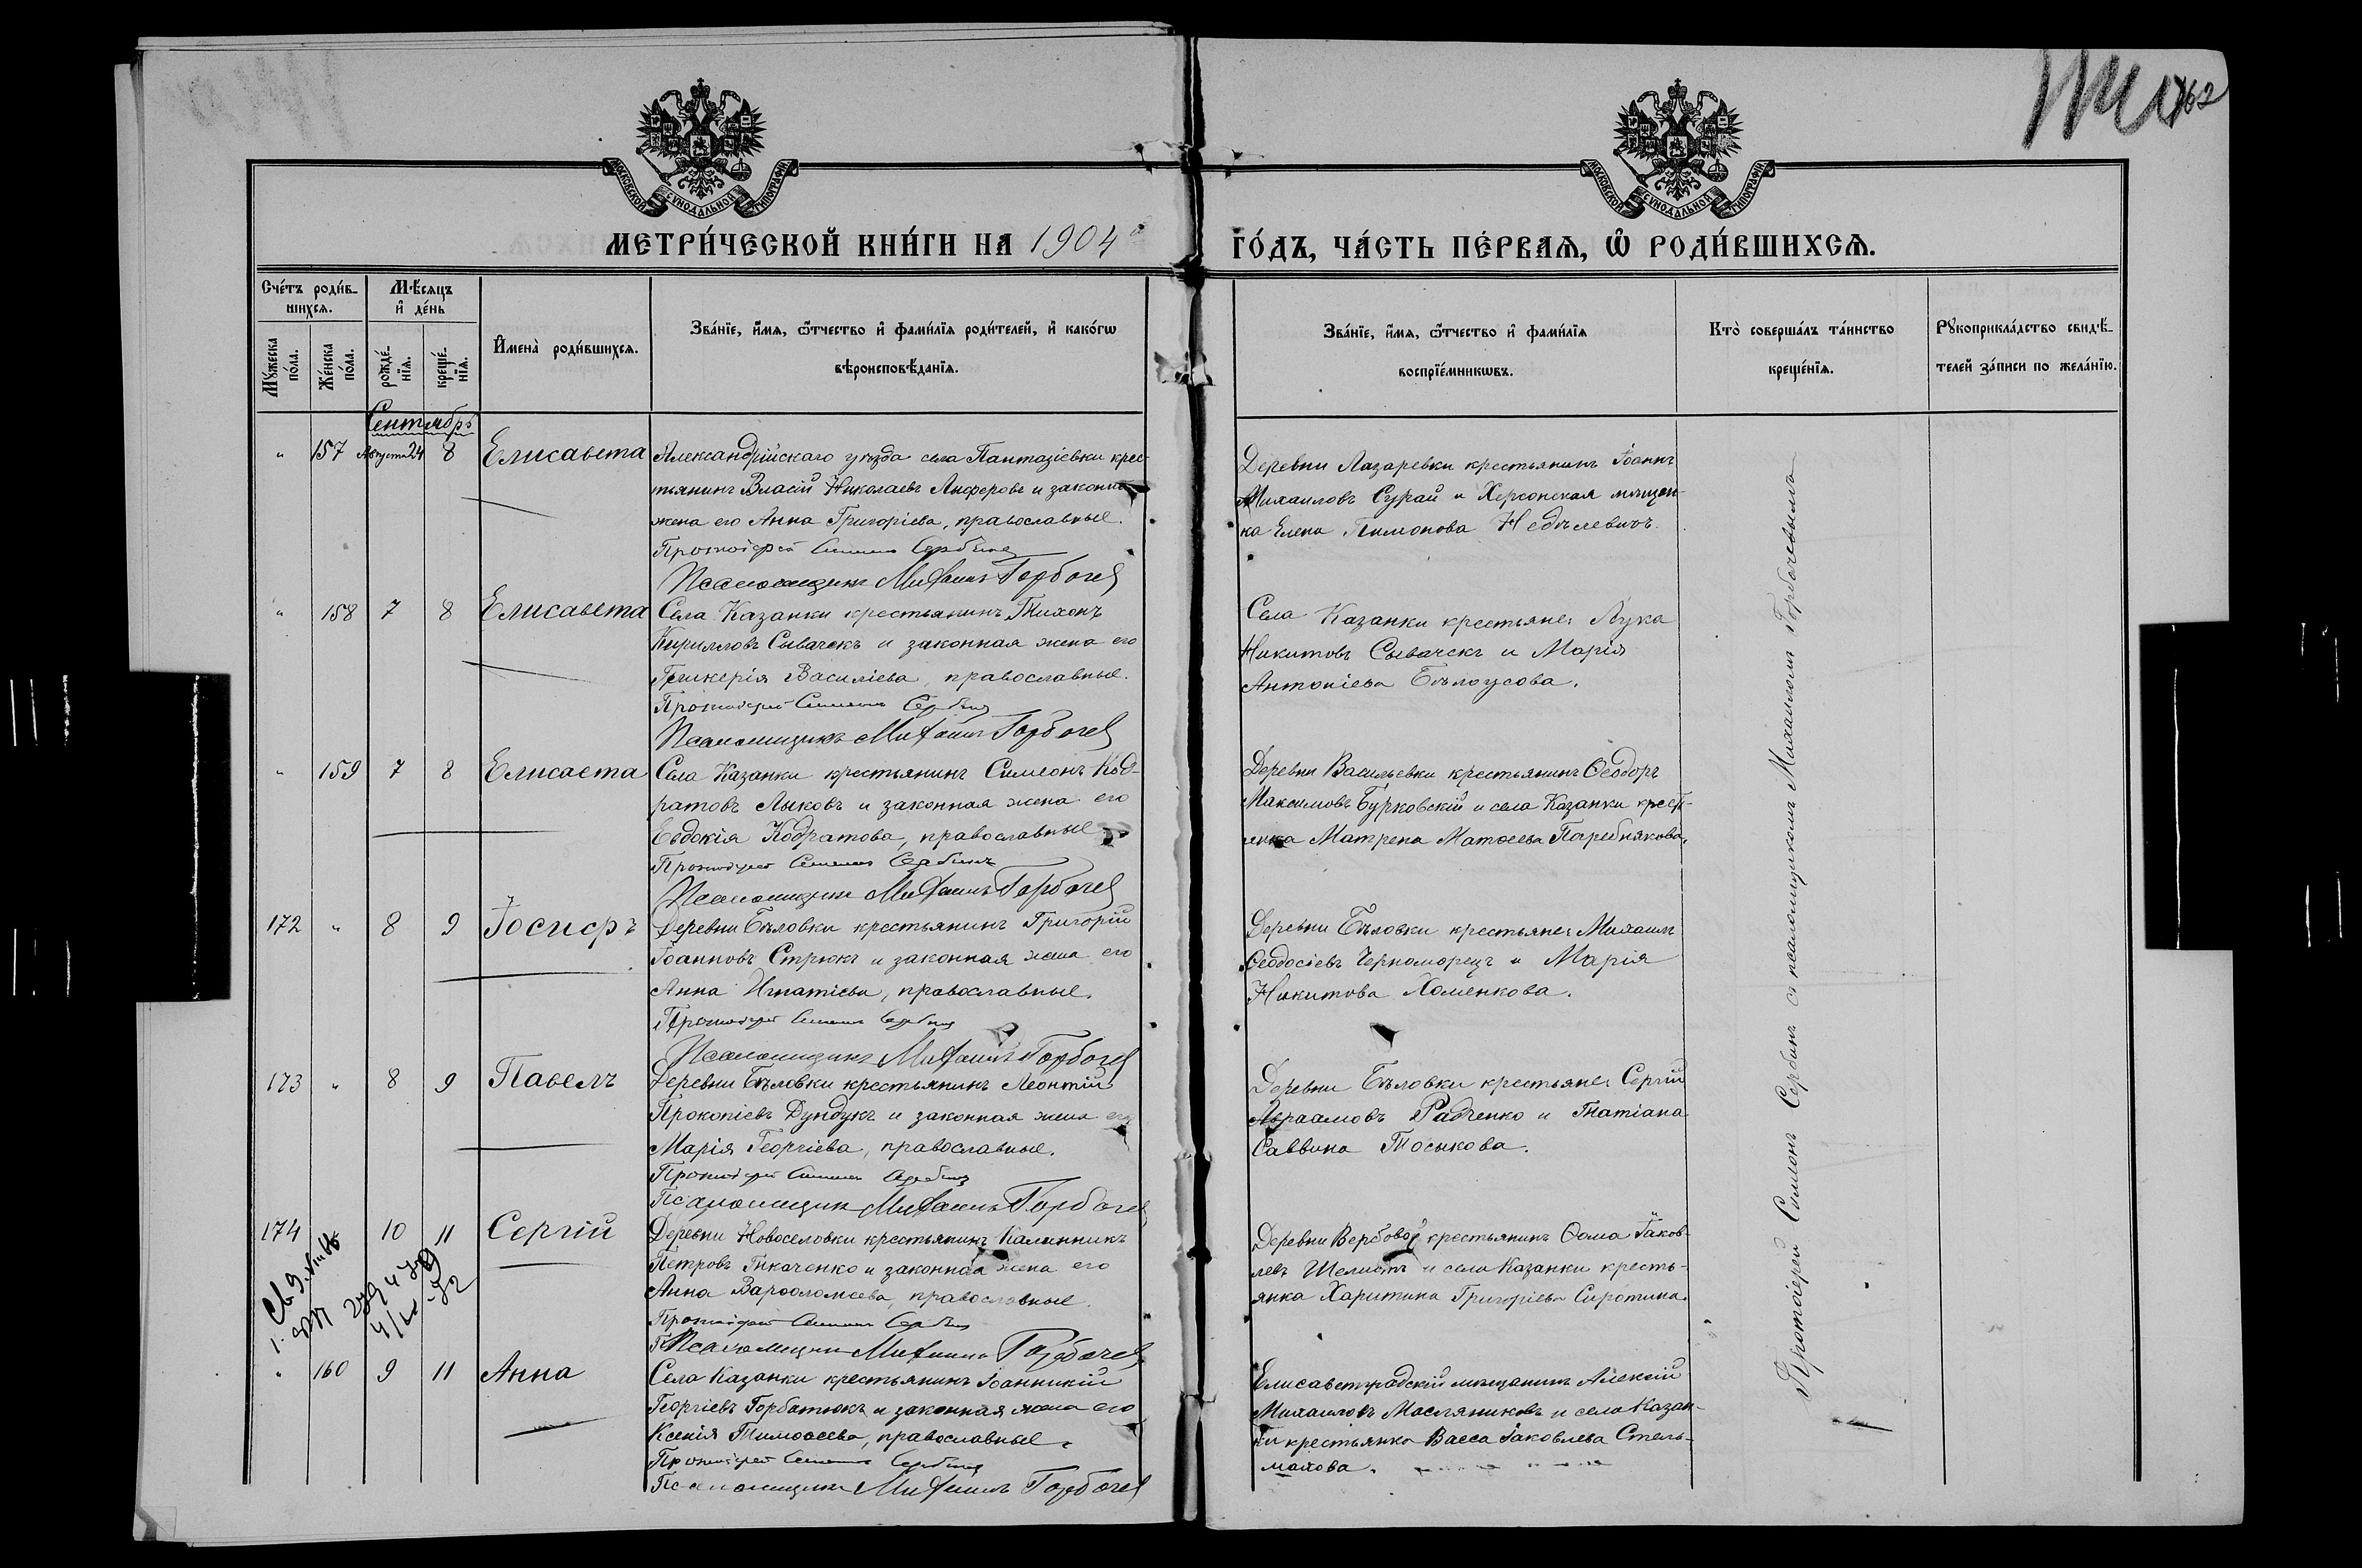 1762
МОСКОВСКОЙ СѴНОДАЛЬНОЙ ТИПОГРАФІИ
МОСКОВСКОЙ СѴНОДАЛЬНОЙ ТИПОГРАФІИ
МЕТРИ́ЧЕСКОЙ КНИ́ГИ НА 1904
ГО́ДЪ, ЧА́СТЬ ПЕ́РВАЯ, Ѽ РОДИ́ВШИХСЯ.
Сче́тъ роди́в-
шихся.
Мꙋ́жеска по́ла.
Же́нска по́ла.
Мѣ́сяцъ и҆ де́нь
рожде́-нїя.
креще́-нїя.
И҆мена̀ роди́вшихся.
Зва́нїе, и҆́мя, ѻ҆́тчество и҆ фами́лїя роди́телей, и҆ како́гѡ
вѣроисповѣ́данїя.
Зва́нїе, и҆́мя, ѻ҆́тчество и҆ фами́лїя
воспрїе́мникѡвъ.
Кто̀ соверша́лъ та́инство
креще́нїя.
Рꙋкоприкла́дство свидѣ́-
телей за́писи по жела́нїю.
Сентябрь
" 157 Августа 24 8 Елисавета
Александрійскаго уѣзда села Пантазіевки крес-
тьянинъ Власій Николаевъ Анферовъ и законная
жена его Анна Григоріева, православные.
Протоіерей Симеонъ Сербинъ
Псаломщикъ Михаилъ Горбачевъ
Деревни Лазаревки крестьянинъ Іоаннъ
Михаиловъ Сурай и Херсонская мѣщан-
ка Елена Пимонова Недѣлевичъ.
" 158 7 8 Елисавета
Села Казанки крестьянинъ Тихонъ
Кирилловъ Сывачекъ и законная жена его
Гликерія Василіева, православные.
Протоіерей Симеонъ Сербинъ
Псаломщикъ Михаилъ Горбачевъ
Села Казанки крестьяне: Лука
Никитовъ Сывачекъ и Марія
Антоніева Бѣлоусова.
" 159 7 8 Елисавета
Села Казанки крестьянинъ Симеонъ Код-
ратовъ Лыковъ и законная жена его
Евдокія Кодратова, православные
Протоіерей Симеонъ Сербинъ
Псаломщикъ Михаилъ Горбачевъ
Деревни Васильевки крестьянинъ Ѳеодоръ
Максимовъ Бурковскій и села Казанки кресть-
янка Матрена Матѳеева Парѣбнякова.
172 " 8 9 Іосифъ
Деревни Бѣловки крестьянинъ Григорій
Іоанновъ Стрюкъ и законная жена его
Анна Игнатіева, православные.
Протоіерей Симеонъ Сербинъ
Псаломщикъ Михаилъ Горбачевъ
Деревни Бѣловки крестьяне: Михаилъ
Ѳеодосіевъ Черноморецъ и Марія
Никитова Хоменкова.
173 " 8 9 Павелъ
Деревни Бѣловки крестьянинъ Леонтій
Прокопіевъ Дундукъ и законная жена его
Марія Георгіева, православные.
Протоіерей Симеонъ Сербинъ
Псаломщикъ Михаилъ Горбачевъ
Деревни Бѣловки крестьяне: Сергій
Авраамовъ Радченко и Татіана
Саввина Тосыкова.
174 10 11 Сергій
Деревни Новоселовки крестьянинъ Калинникъ
Петровъ Ткаченко и законная жена его
Анна Варѳоломеева, православные
Протоіерей Симеонъ Сербинъ
Псаломщикъ Михаилъ Горбачевъ
Деревни Вербовой крестьянинъ Ѳома Іаков-
левъ Шелистъ и села Казанки кресть-
янка Харитина Григоріева Сиротина.
" 160 9 11 Анна
Села Казанки крестьянинъ Іоанникій
Георгіевъ Горбатюкъ и законная жена его
Ксенія Тимоѳеева, православные.
Протоіерей Симеонъ Сербинъ
Псаломщикъ Михаилъ Горбачевъ
Елисаветградскій мѣщанинъ Алексій
Михаиловъ Масляниковъ и села Казан-
ки крестьянка Васса Іаковлева Стель-
махова.
Протоіерей Симеонъ Сербинъ съ псаломщикомъ Михаиломъ Горбачевымъ